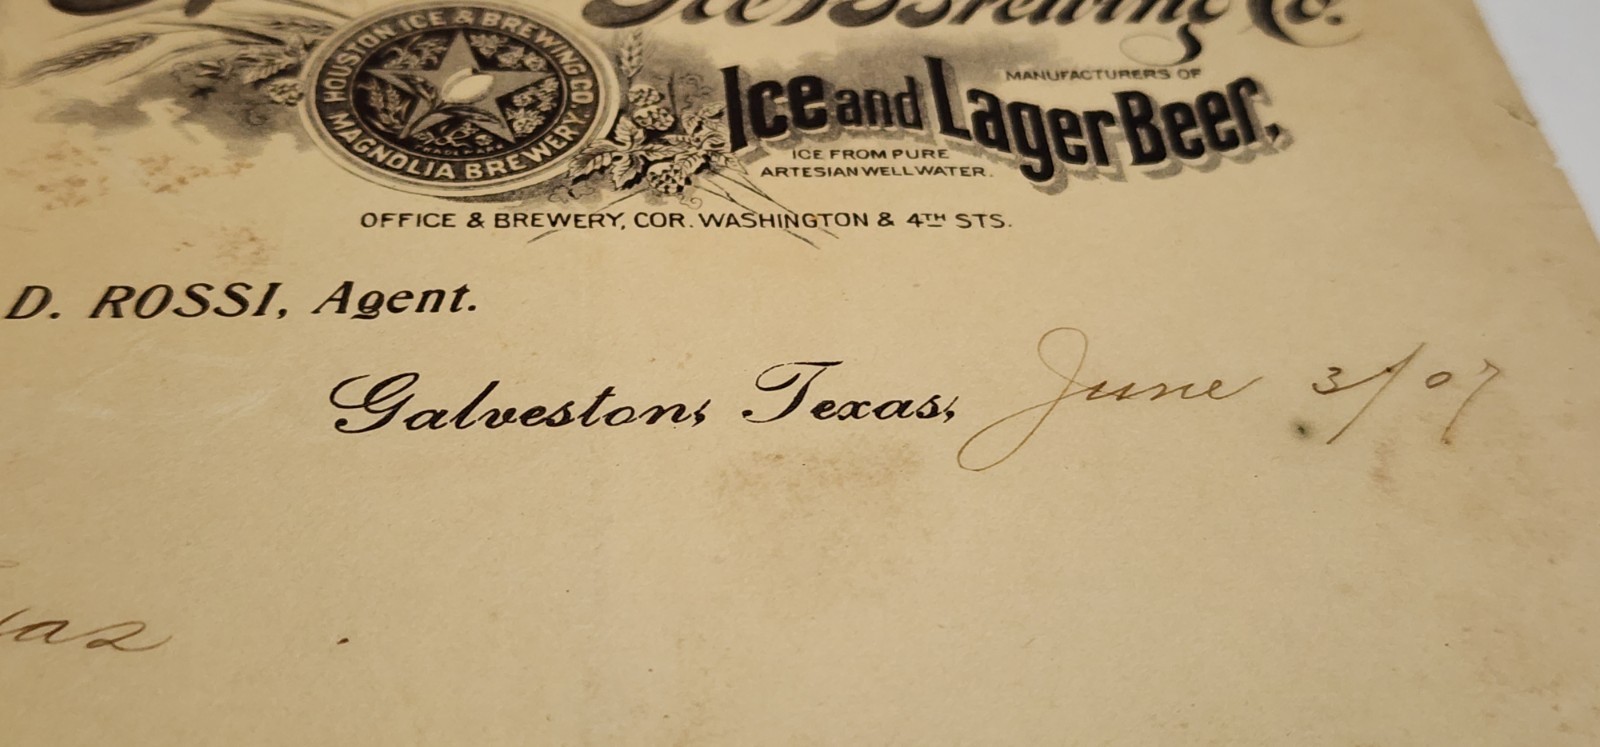 Ice & Brewing Co.
HOUSTON ICE & BREWING CO.
MAGNOLIA BREWERY.
MANUFACTURERS OF
Ice and Lager Beer,
ICE FROM PURE
ARTESIAN WELL WATER.
OFFICE & BREWERY, COR. WASHINGTON & 4TH STS.
D. ROSSI, Agent.
Galveston, Texas, June 3/07